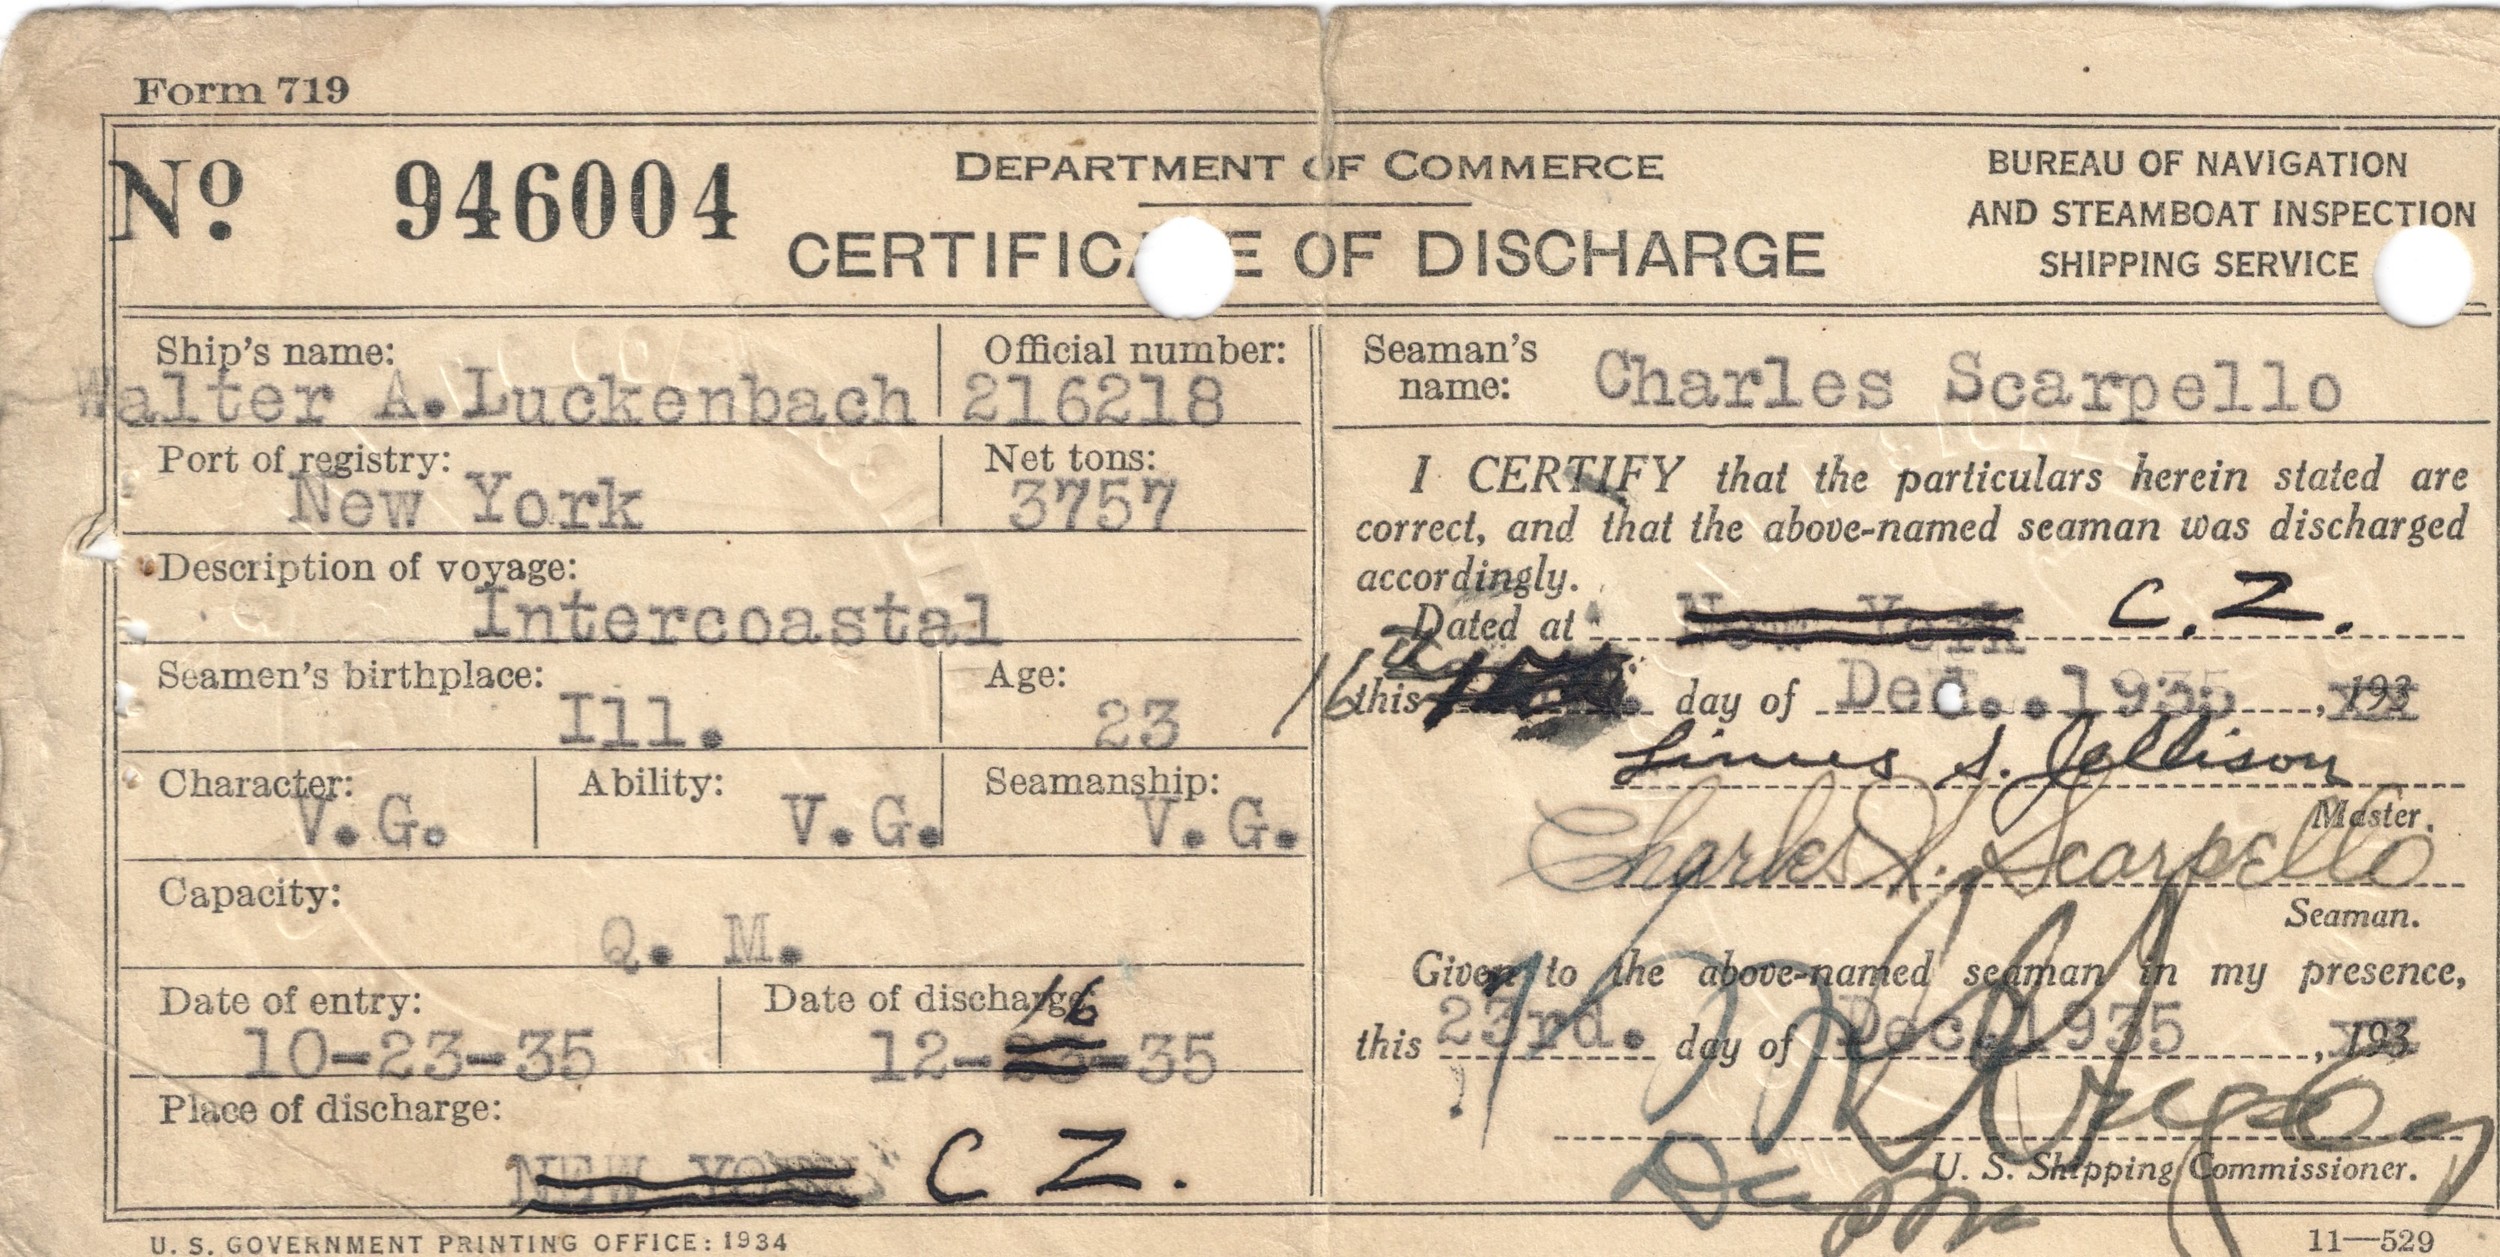 Form 719
No. 946004
DEPARTMENT OF COMMERCE
CERTIFICA E OF DISCHARGE
BUREAU OF NAVIGATION
AND STEAMBOAT INSPECTION
SHIPPING SERVICE
Ship's name:
Walter A. Luckenbach
Official number:
216218
Port of registry:
New York
Net tons:
3757
Description of voyage:
Intercoastal
Seamen's birthplace:
Ill.
Age:
23
Character:
V. G.
Ability:
V. G.
Seamanship:
V. G.
Capacity:
Q. M.
Date of entry:
10-23-35
Date of discharge:
16
12-23-35
Place of discharge:
NEW YORK C Z.
U. S. GOVERNMENT PRINTING OFFICE: 1934
Seaman's
name: Charles Scarpello
I CERTIFY that the particulars herein stated are
correct, and that the above-named seaman was discharged
accordingly.
Dated at New York C. Z.
16th
this day of Dec..1935, 193
Master.
Charles Scarpello
Seaman.
Given to the above-named seaman in my presence,
this 23rd. day of Dec. 1935, 193
U. S. Shipping Commissioner.
11—529